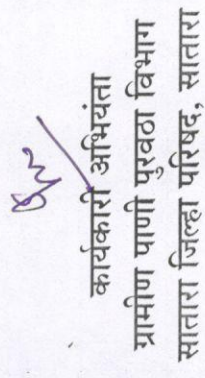 कार्यकारी अभियंता
ग्रामीण पाणी पुरवठा विभाग
सातारा जिल्हा परिषद, सातारा